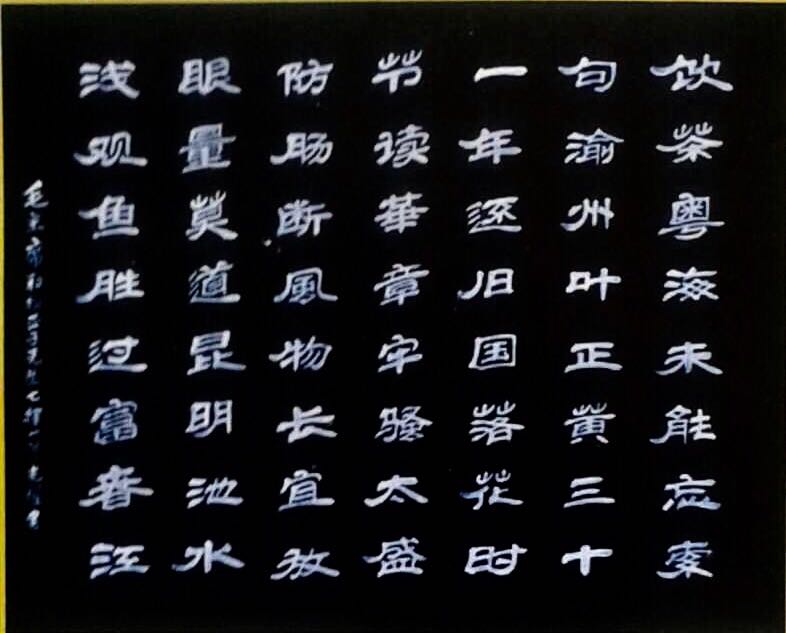 饮茶粤海未能忘索
句渝州叶正黄三十
一年还旧国落花时
节读華章牢骚太盛
防肠断風物长宜放
眼量莫道昆明池水
浅观鱼胜过富春江
毛主席和柳亚子先生七律一首